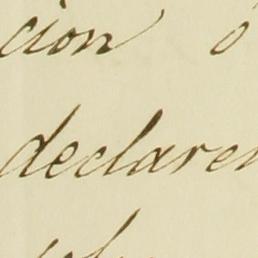 cion ó
declaren